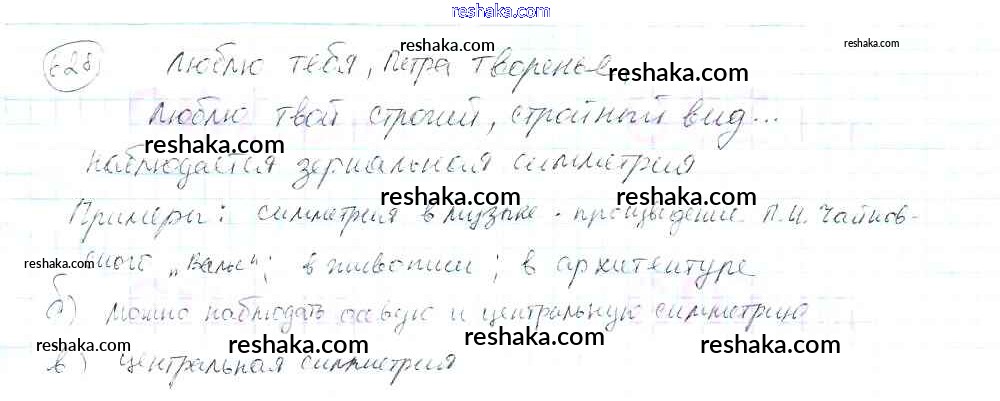 reshaka.com
628 Люблю тебя, Петра творенье
reshaka.com reshaka.com
Люблю твой строгий, стройный вид...
reshaka.com reshaka.com
наблюдается зеркальная симметрия
reshaka.com reshaka.com reshaka.com
Примеры: симметрия в музыке - произведение П.И. Чайков-
reshaka.com
ского "Вальс"; в живописи; в архитектуре
б) можно наблюдать осевую и центральную симметрию
reshaka.com reshaka.com reshaka.com
в) центральная симметрия
reshaka.com